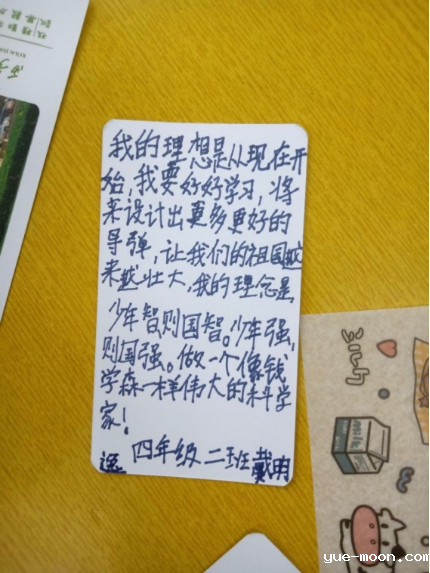 我的理想是从现在开
始,我要好好学习,将
来设计出更多更好的
导弹,让我们的祖国越
来越壮大,我的理念是,
少年智,则国智。少年强,
则国强。做一个像钱
学森一样伟大的科学
家!
四年级二班戴明
逸
milk
yue-moon.com